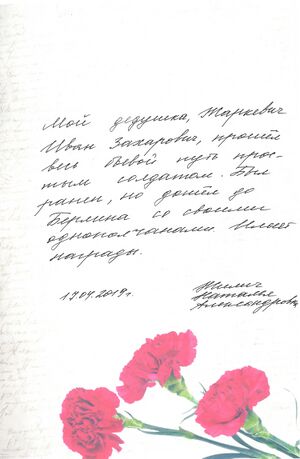 Мой дедушка, Жаркевич
Иван Захарович, прошёл
весь боевой путь прос-
тым солдатом. Был
ранен, но дошёл до
Берлина со своими
однополчанами. Имеет
награды.
17.04.2019г.
Наталья
Александровна